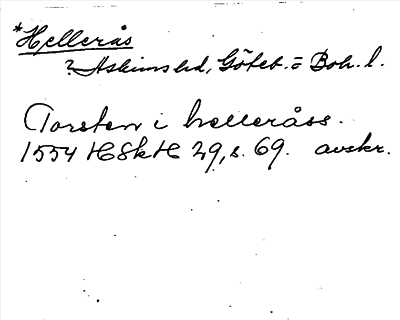 *Hellerås
? Askims hd, Göteb. o Boh. l.
Torsten i helleråss.
1554 HSkH 29, s. 69. avskr.